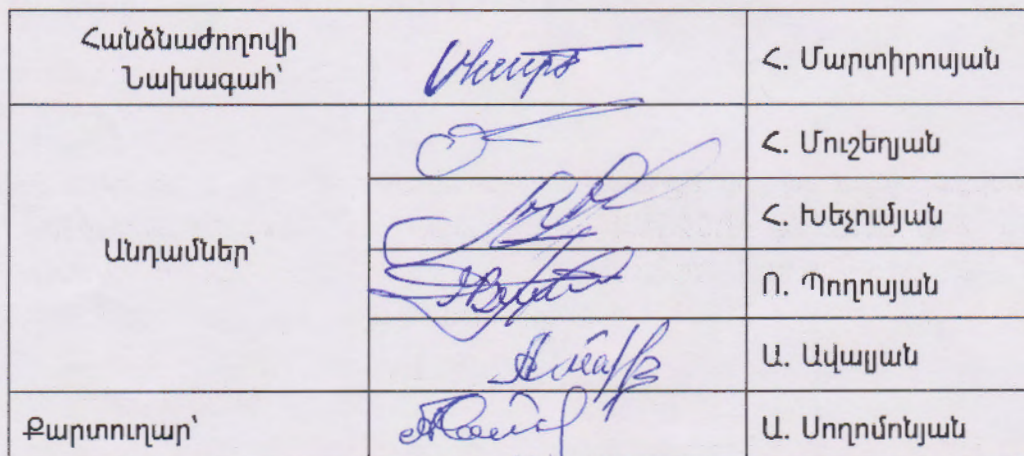 Հանձնաժողովի
Նախագահ՝
Հ. Մարտիրոսյան
Անդամներ՝
Հ. Մուշեղյան
Հ. Խեչումյան
Ո. Պողոսյան
Ա. Ավալյան
Քարտուղար՝
Ա. Սողոմոնյան